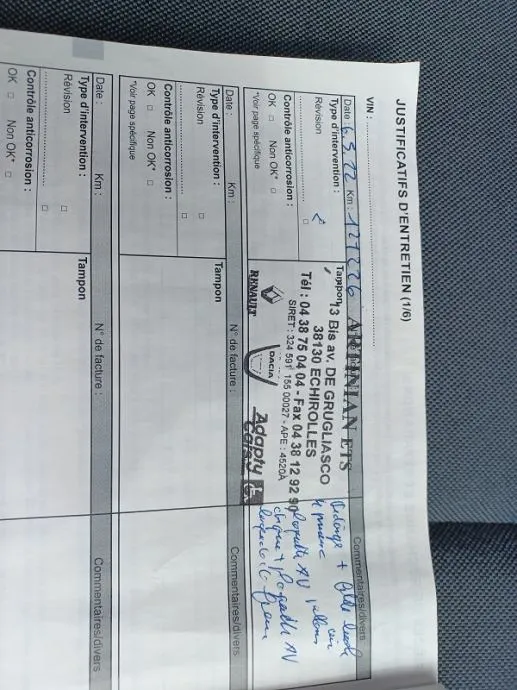 JUSTIFICATIFS D'ENTRETIEN (1/6)
VIN :
Date : 6.3.12 Km : 127226
Commentaires/divers
Type d'intervention :
Révision
Contrôle anticorrosion :
OK Non OK*
*Voir page spécifique
Tampon
ARTINIAN ETS
13 Bis av. DE GRUGLIASCO
38130 ECHIROLLES
Tél : 04 38 75 04 04 - Fax 04 38 12 92 90
SIRET : 324 591 155 00027 - APE : 4520A
RENAULT
DACIA
Adapty
+
AV
+ AV
Date : Km : N° de facture : Commentaires/divers
Type d'intervention :
Révision
Contrôle anticorrosion :
OK Non OK*
*Voir page spécifique
Tampon
Date : Km : N° de facture : Commentaires/divers
Type d'intervention :
Révision
Contrôle anticorrosion :
OK Non OK*
Tampon